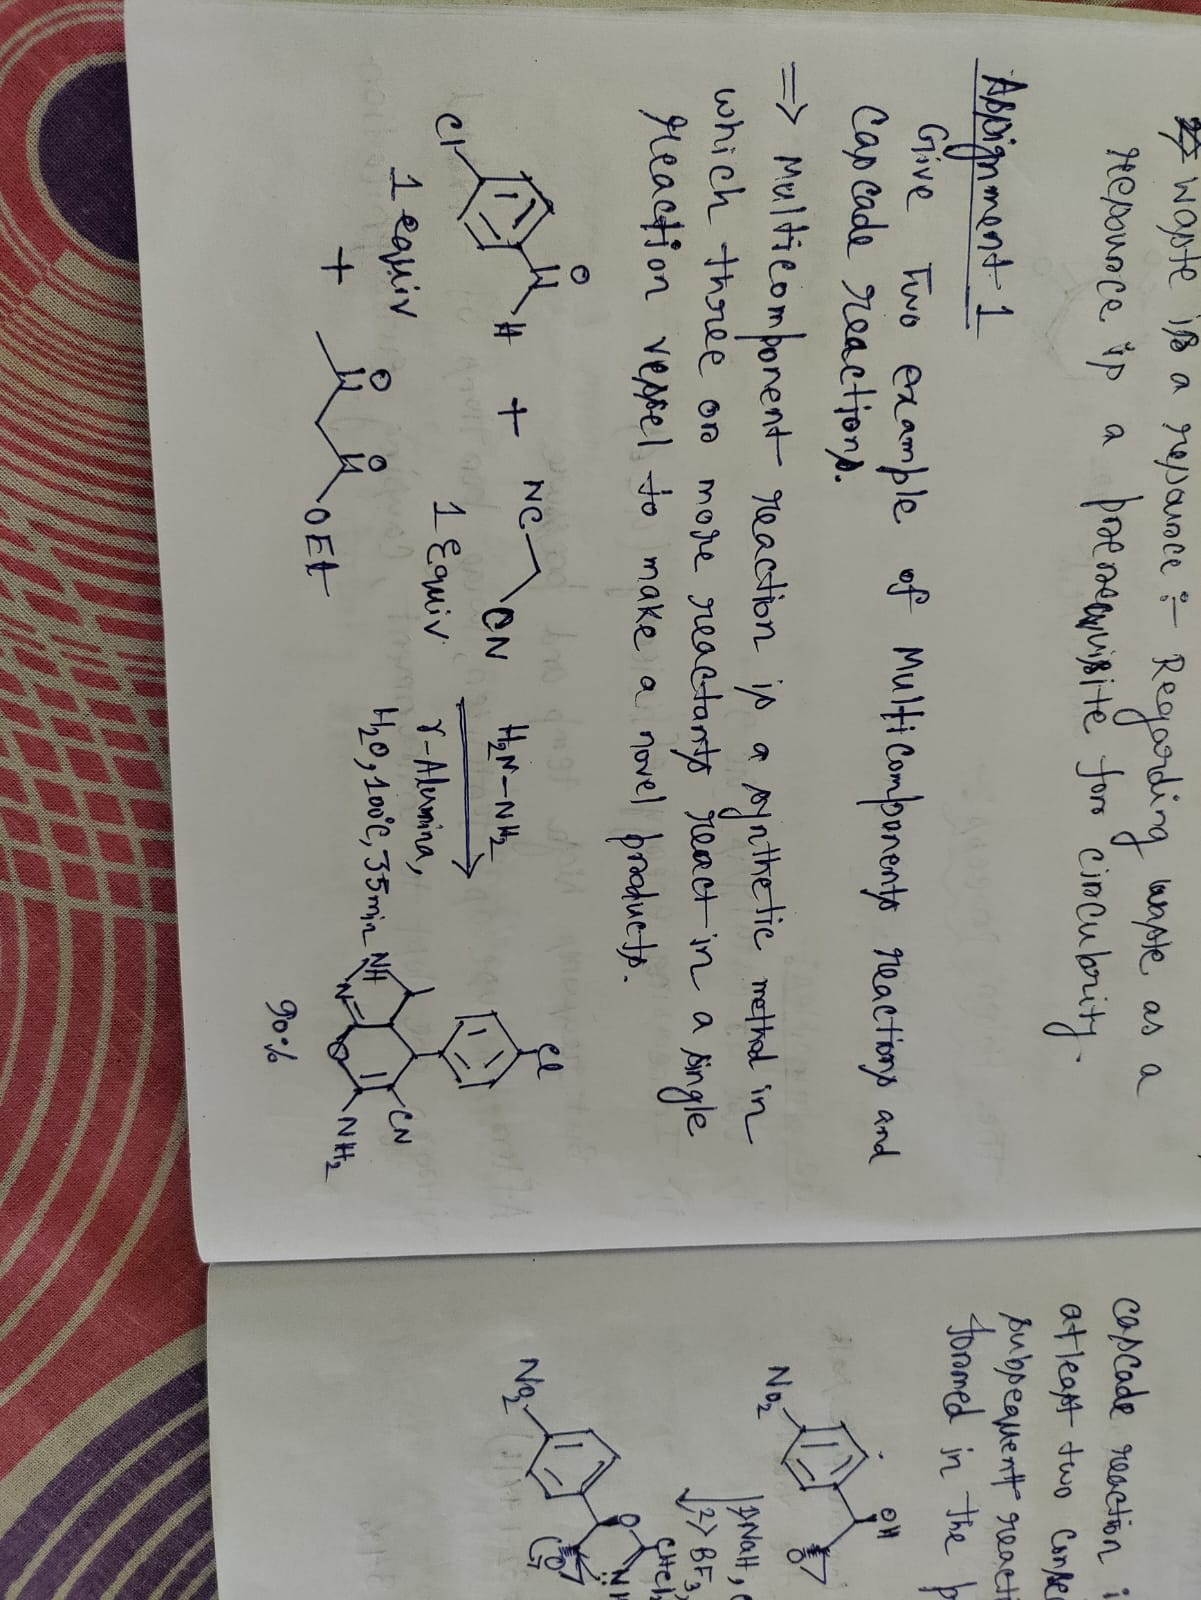 2> Waste is a resource :- Regarding waste as a
resource is a prerequisite for circularity.
Assignment 1
Give Two example of Multicomponents reactions and
Cascade reactions.
=> Multicomponent reaction is a synthetic method in
which three or more reactants react in a single
reaction vessel to make a novel products.
O
H
Cl
1 equiv
+
NC
CN
1 Equiv
+
O O
OEt
H2N-NH2
γ-Alumina,
H2O, 100°C, 35min
Cl
CN
NH
N
O
NH2
90%
cascade reaction
atleast two
subsequent
formed in the
OH
O
NO2
1>NaH,
2> BF3,
O
NO2
O